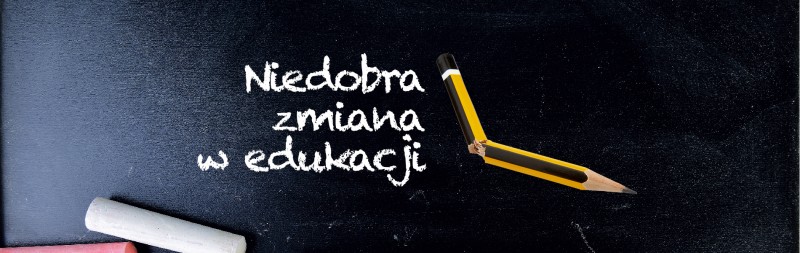 Niedobra
zmiana
w edukacji